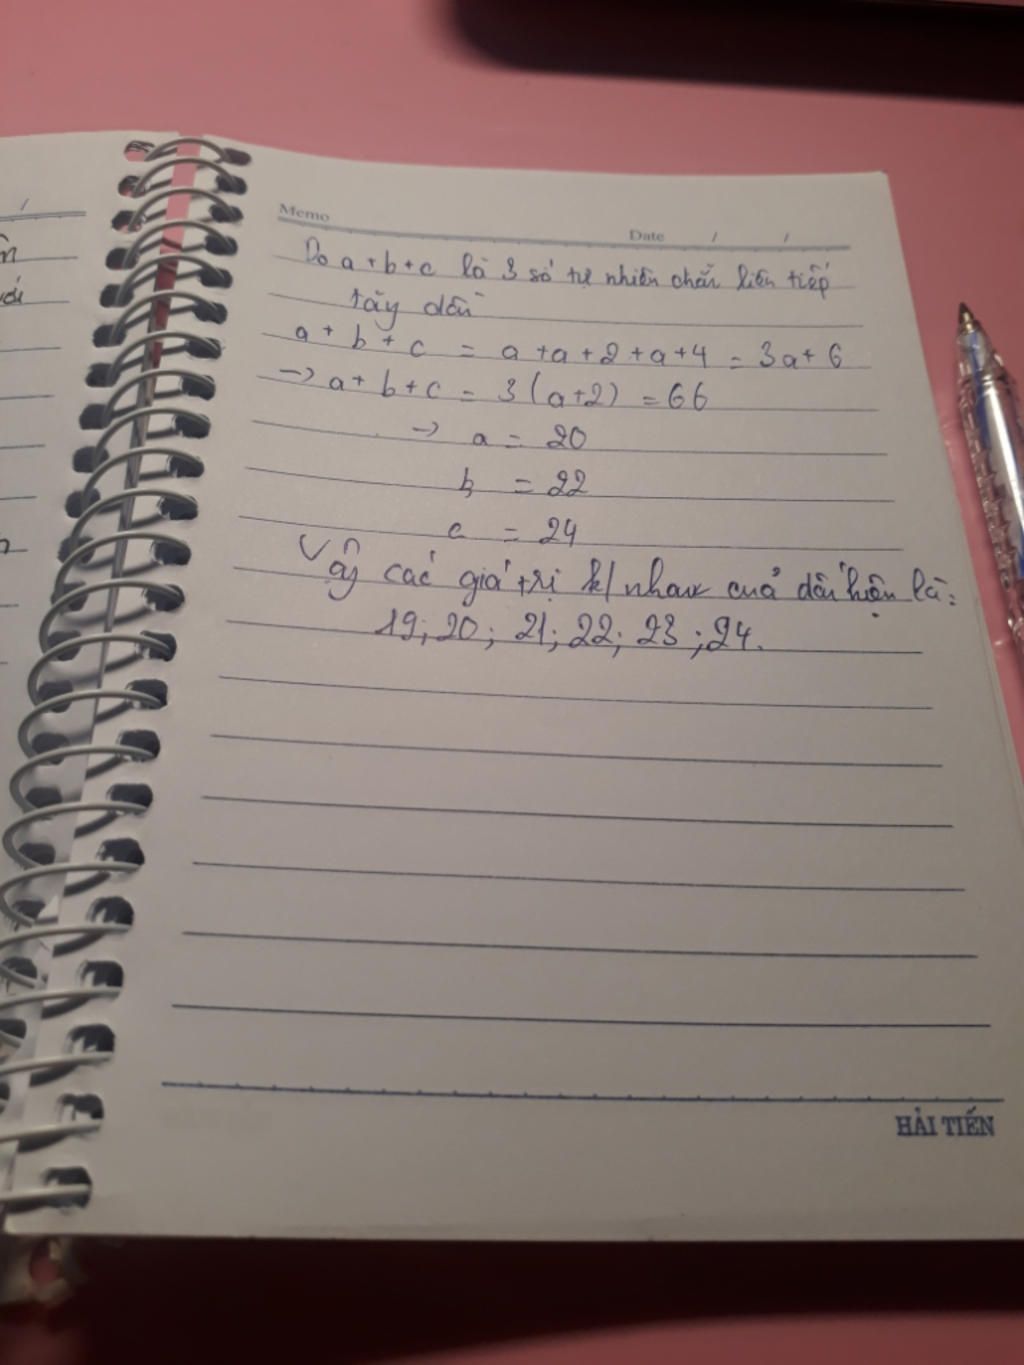 Memo
Date / /
Do a + b + c là 3 số tự nhiên chẵn liên tiếp
tăng dần
a + b + c = a + a + 2 + a + 4 = 3a + 6
→ a + b + c = 3 (a+2) = 66
→ a = 20
b = 22
c = 24
Vậy các giá trị k/nhau của dấu hiệu là:
19; 20; 21; 22; 23; 24.
HẢI TIẾN